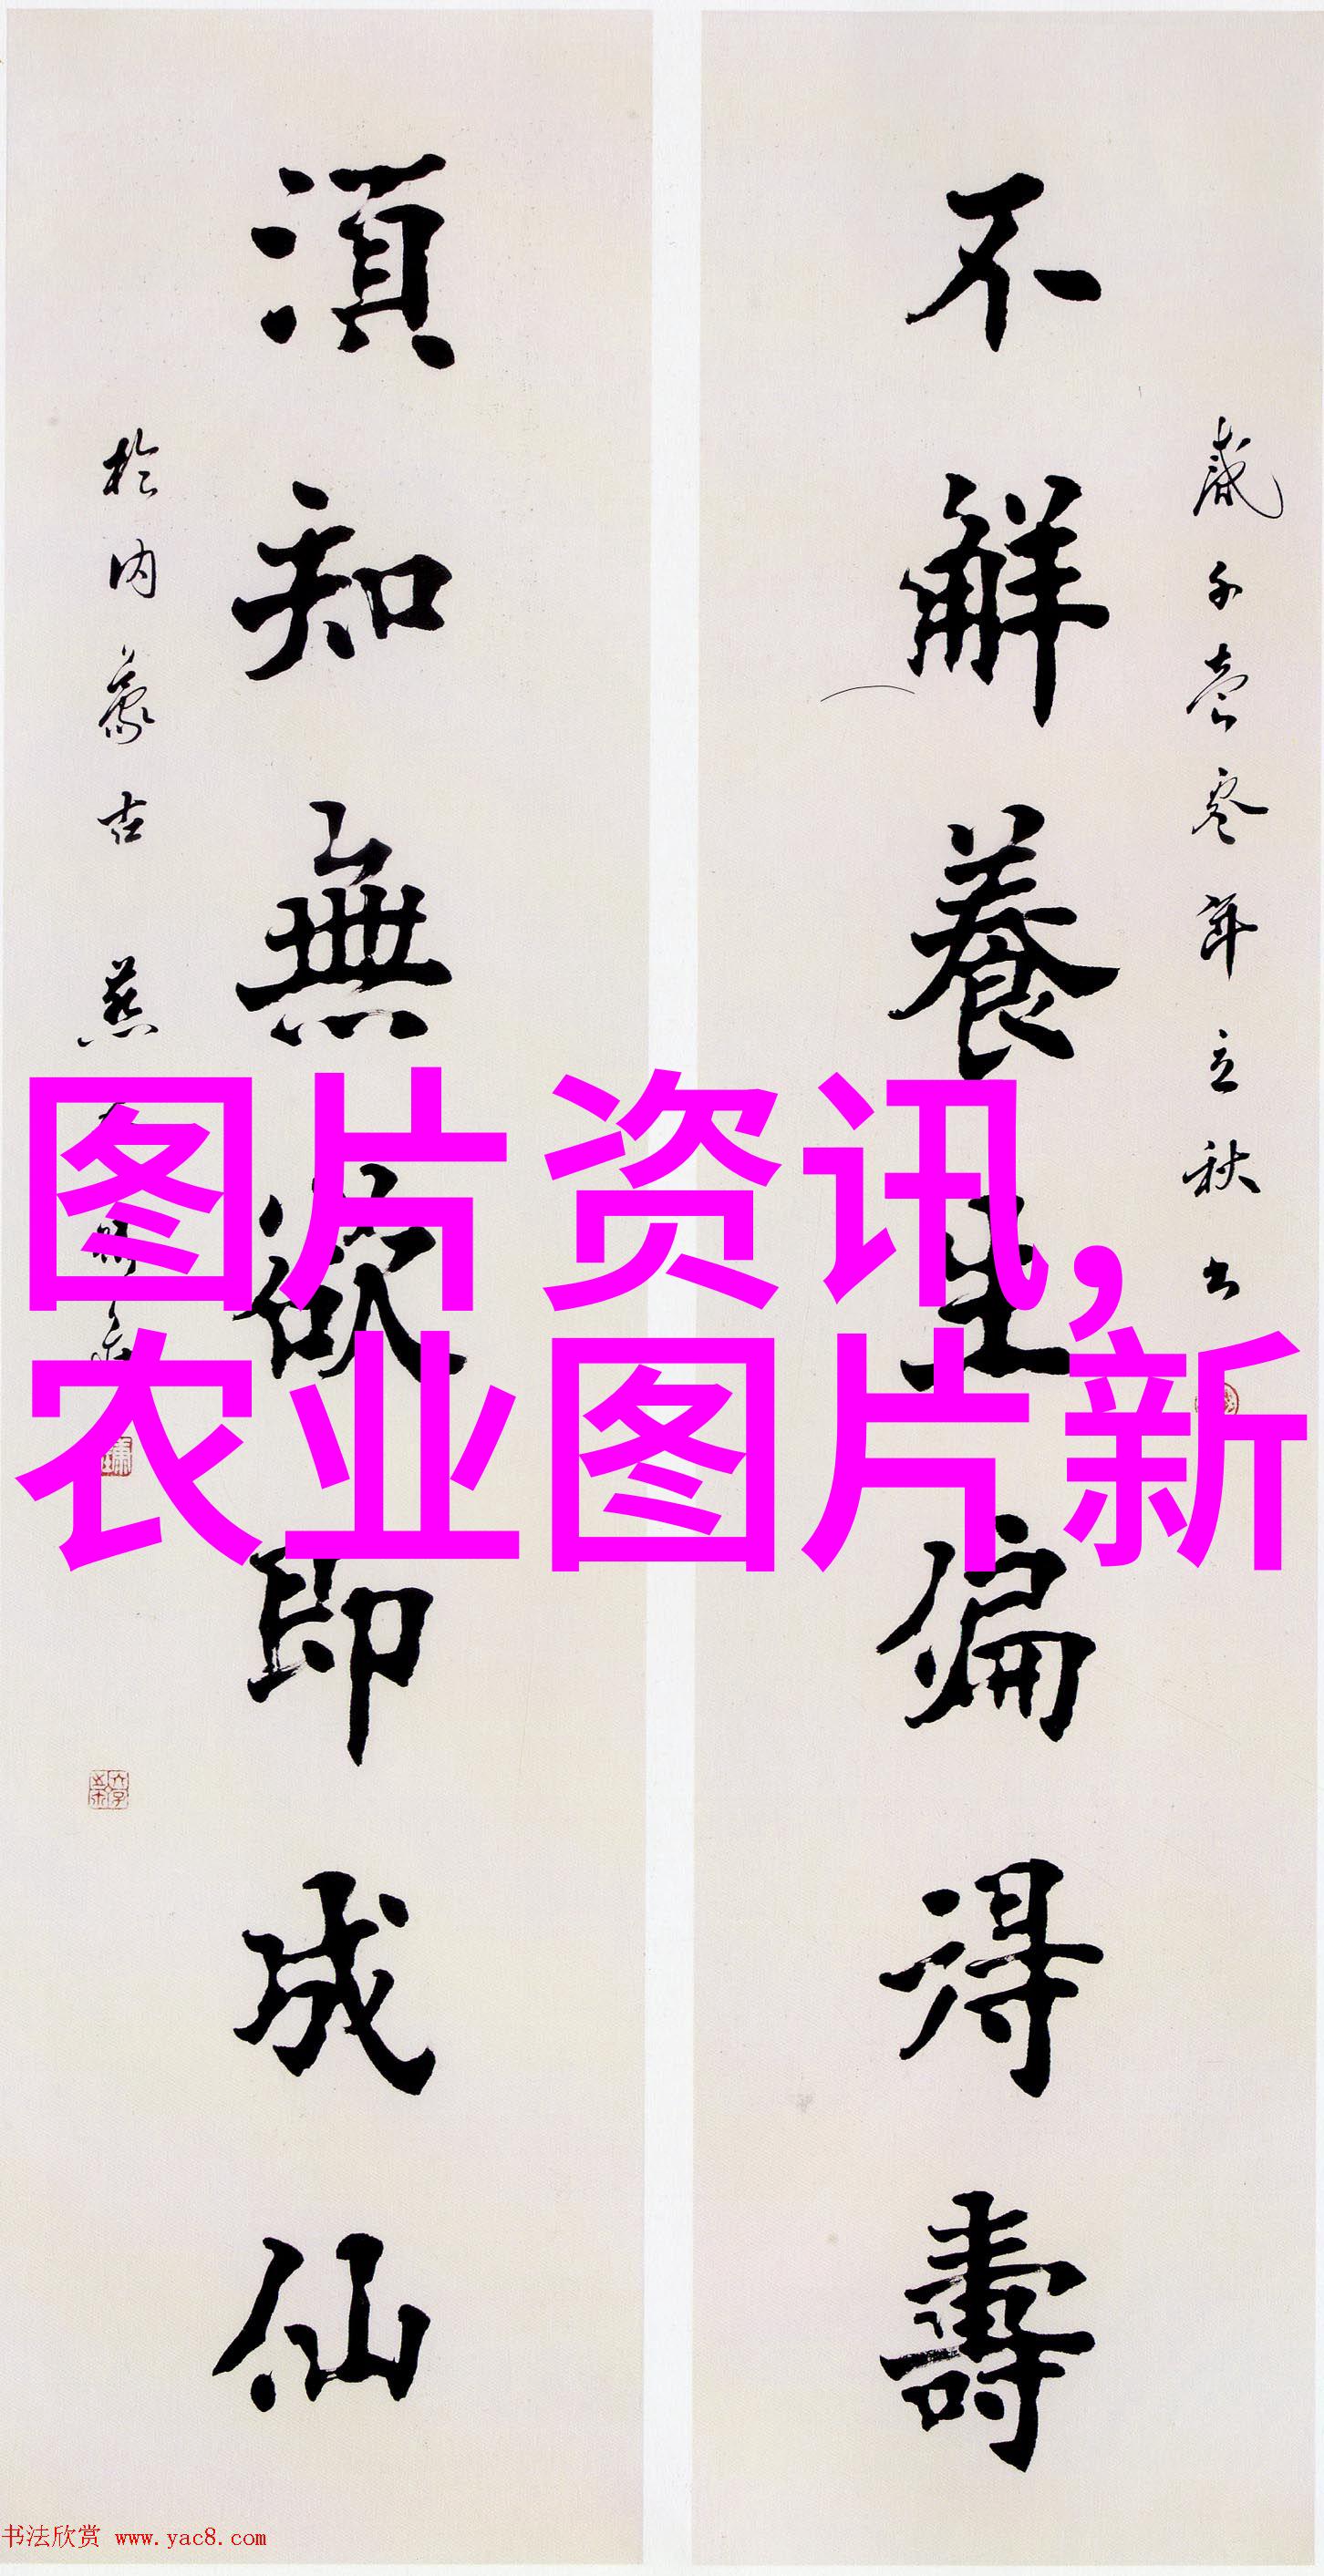 歲手壹零年立秋書
不解養生偏得壽
須知無欲即成仙
於内蒙古燕
图片资讯,
农业图片新
书法欣赏 www.yac8.com